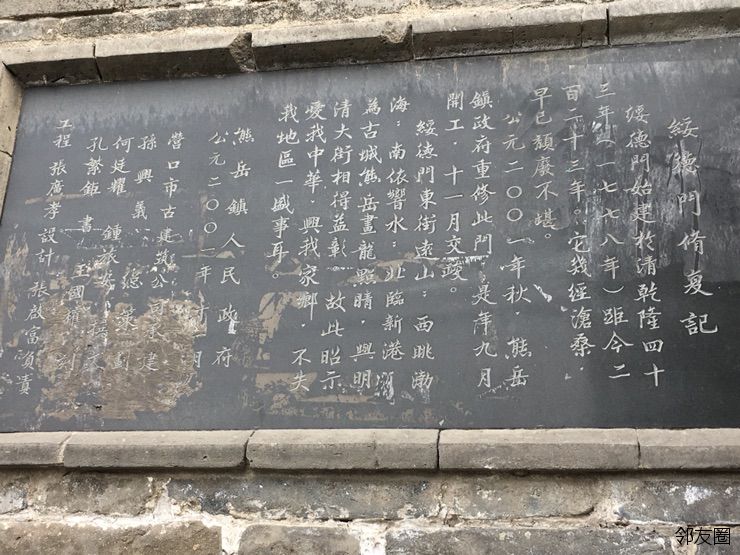 綏德門脩复記
綏德門始建於清乾隆四十
三年（一七七八年）距今二
百二十三年。它幾經滄桑，
早已頹廢不堪。
公元二〇〇一年秋，熊岳
鎮政府重修此門，是年九月
開工，十一月交竣。
綏德門東街遠山；西眺渤
海；南依響水；北臨新港，
為古城熊岳畫龍點睛，與明
清大街相得益彰，故此昭示
愛我中華，興我家鄉，不失
我地區一盛事耳。
熊岳鎮人民政府
公元二〇〇一年十一月
營口市古建築公司承建
孫興義 總策劃
何廷耀 鍾旅安 撰文
孔繁鉅 書 王國楨 刻
工程張廣孝設計 張啟富負責
邻友圈